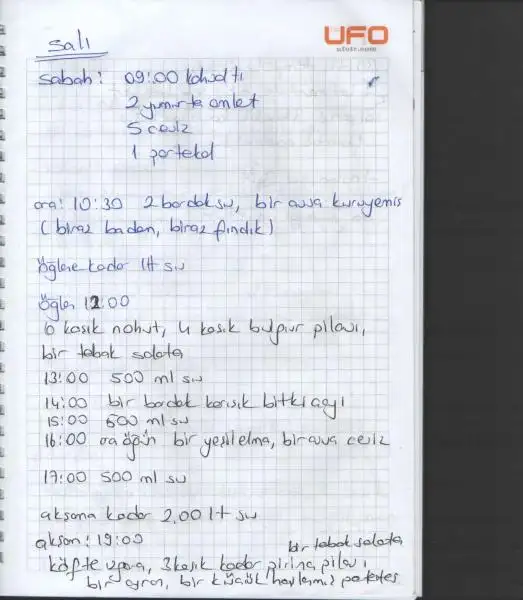 UFO
ufuk.com
Salı
Sabah: 09:00 kahvaltı
2 yumurta omlet
5 ceviz
1 portakal
ara: 10:30 2 bardak su, bir avuç kuruyemiş
(biraz badem, biraz fındık)
Öğlene kadar 1 lt su
Öğlen 12:00
6 kaşık nohut, 4 kaşık bulgur pilavı,
bir tabak salata
13:00 500 ml su
14:00 bir bardak karışık bitki çayı
15:00 500 ml su
16:00 ara öğün bir yeşil elma, bir avuç ceviz
17:00 500 ml su
akşama kadar 2,00 lt su
akşam: 19:00
bir tabak salata
köfte ızgara, 3 kaşık kadar pirinç pilavı,
bir ayran, bir küçük haşlanmış patates